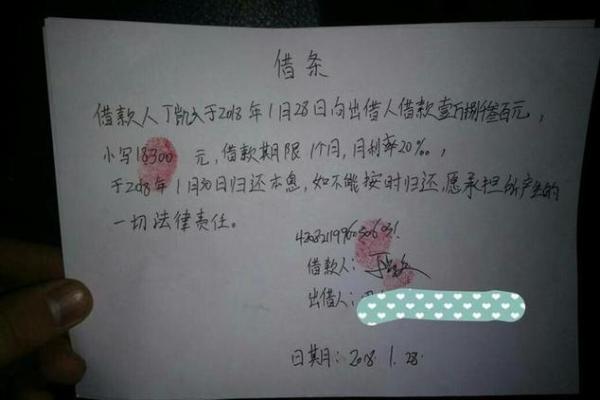 借条
借款人丁凯文于2018年1月28日向出借人借款壹万捌仟叁百元，
小写18300元，借款期限1个月，月利率20‰，
于2018年1月30日归还本息，如不能按时归还，愿承担所产生的
一切法律责任。
借款人：
出借人：
日期：2018.1.28.